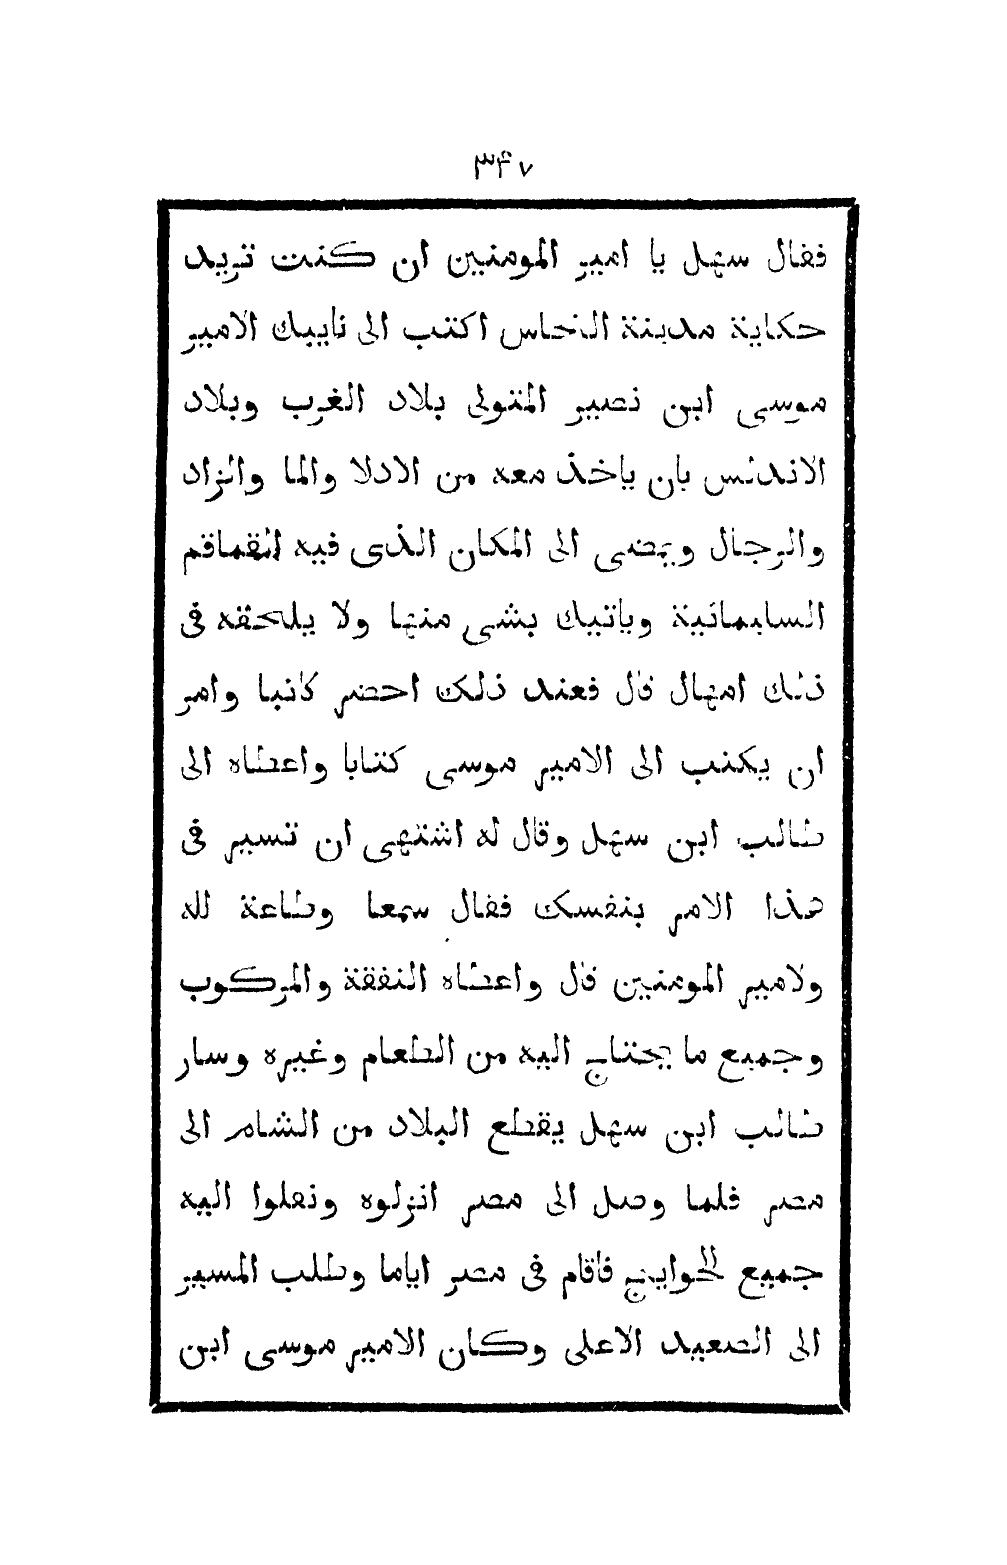 ٣۴٧
فقال سهل يا امير المومنين ان كنت تريد
حكاية مدينة النحاس اكتب الى نايبك الامير
موسى ابن نصير المتولى بلاد الغرب وبلاد
الاندلس بان ياخذ معه من الادلا والما والزاد
والرجال ويمضى الى المكان الذى فيه القماقم
السليمانية وياتيك بشى منها ولا يلحقه فى
ذلك امهال قال فعند ذلك احضر كاتبا وامر
ان يكتب الى الامير موسى كتابا واعطاه الى
طالب ابن سهل وقال له اشتهى ان تسير فى
هذا الامر بنفسك فقال سمعا وطاعة لله
ولامير المومنين قال واعطاه النفقة والمركوب
وجميع ما يحتاج اليه من الطعام وغيره وسار
طالب ابن سهل يقطع البلاد من الشام الى
مصر فلما وصل الى مصر انزلوه ونقلوا اليه
جميع الحوايج فاقام فى مصر اياما وطلب المسير
الى الصعيد الاعلى وكان الامير موسى ابن